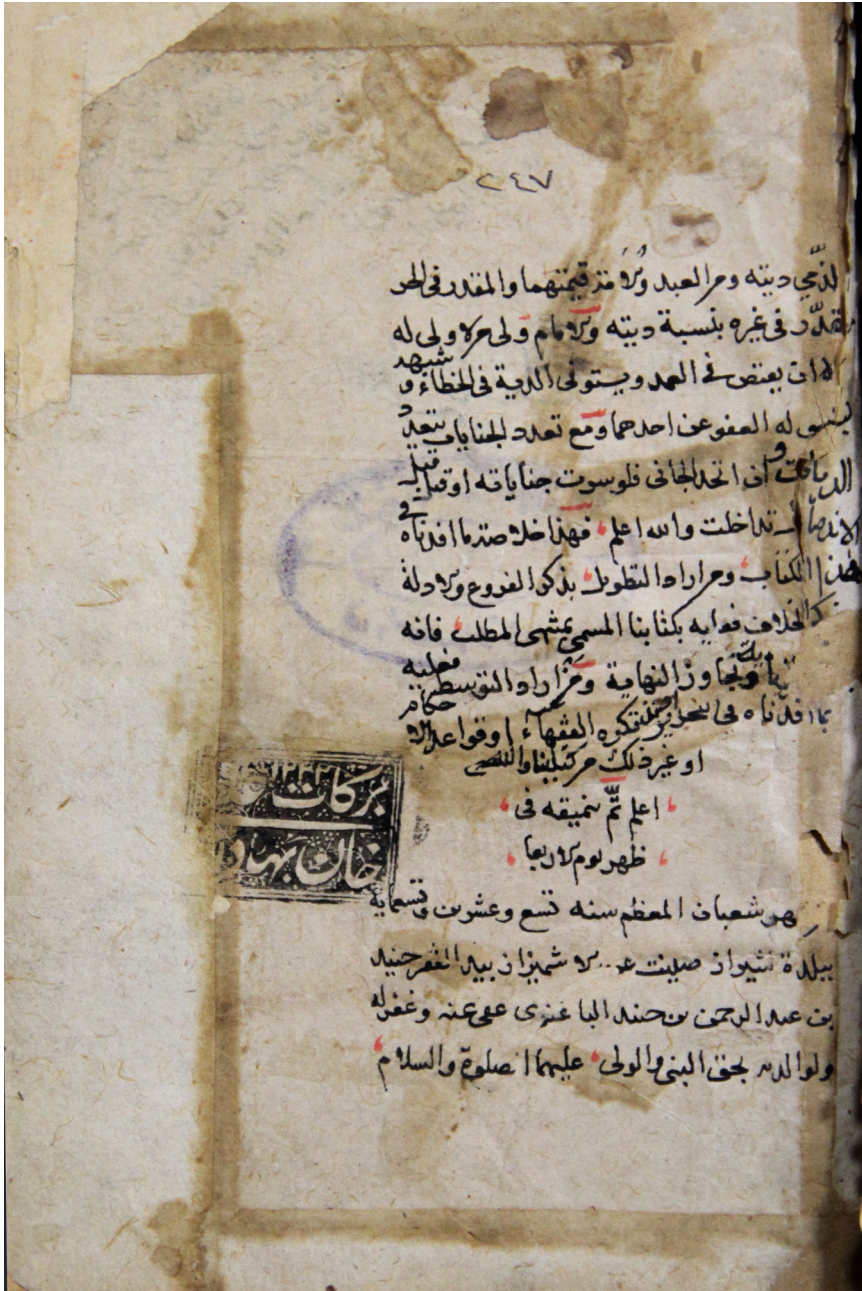 ٢٤٧
لذمي ديته ومن العبد والامة قيمتهما والمقدر فى الحر
مقدّر فى غيره بنسبة ديته والامام ولى من لا ولى له
الا ان يقتص فى العمد ويستوفى الدية فى الخطاء و شبهه
ليس له العفو عن احدهما ومع تعدد الجنايات يتعدد
الديات و ان اتحد الجانى فلو سرت جناياته او قتله قبل
الاندمال تداخلت والله اعلم فهذا خلاصة ما افدناه فى
هذا الكتاب ومن اراد التطويل بذكر الفروع والادلة
ذكر الخلاف فعليه بكتابنا المسمى بمنتهى المطلب فانه
بلغ وتجاوز النهاية ومن اراد التوسط فعليه
بما افدناه فى التحرير وتذكرة الفقهاء او قواعد الاحكام
او غير ذلك من كتبنا والله
اعلم تمّ تنميقه فى
ظهر يوم الاربعا
شهر شعبان المعظم سنه تسع وعشرين وتسعمايه
ببلدة شيراز صينت عن الا بيد الفقير جنيد
بن عبد الرحمن بن جنيد الباغنوى عفى عنه وغفر له
ولوالديه بحق النبى والولى عليهما الصلوة والسلام
بركات
خان بهاد